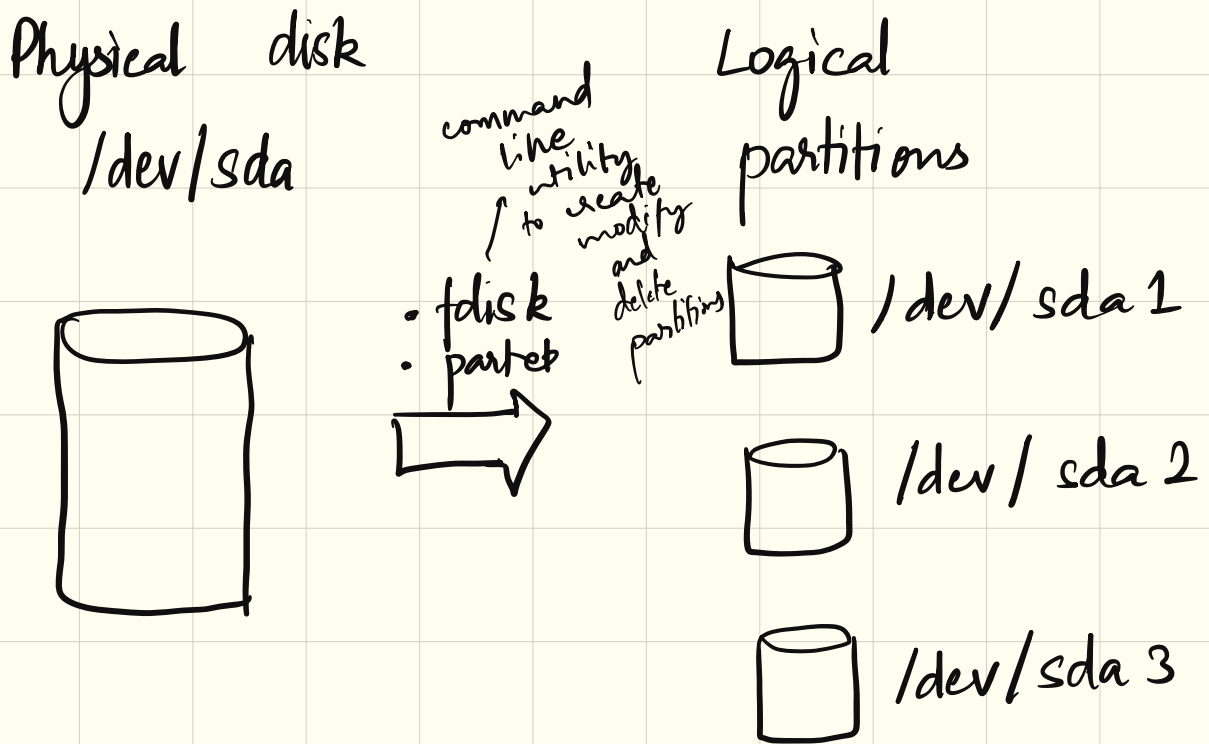 Physical disk
/dev/sda
command
line
utility
to create
modify
and
delete
partitions
• fdisk
• parted
Logical
partitions
/dev/sda 1
/dev/ sda 2
/dev/sda 3